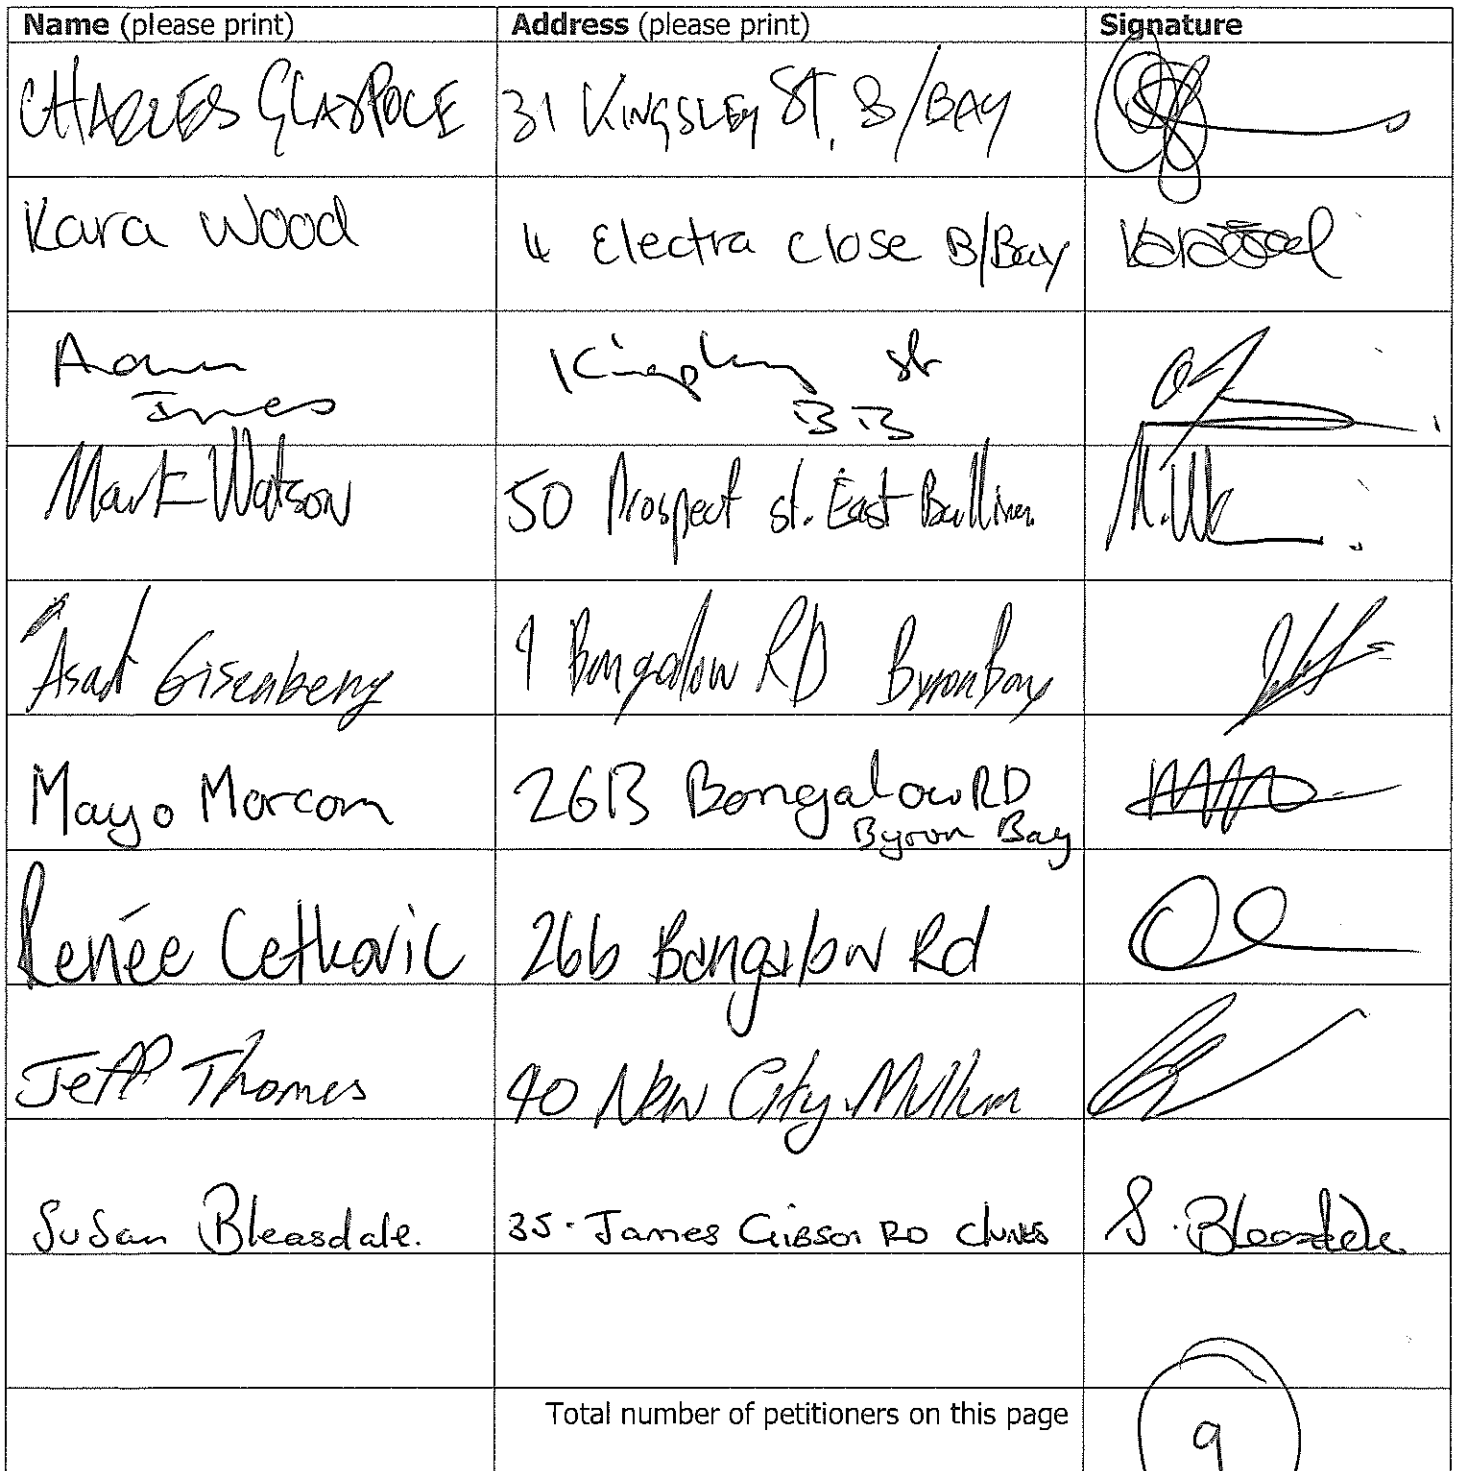 Name (please print) Address (please print) Signature
CHARLES GLASPOLE 31 KINGSLEY ST, B/BAY
Kara Wood 4 Electra Close B/Bay
Adam Kingsley str
Jones BB
Mark Watson 50 Prospect st. East Ballina M.W
Asaf Eisenberg 9 Bangalow RD Byron Bay
Mayo Morcom 26B Bangalow RD
Byron Bay
Renée Cetkovic 26b Bangalow Rd
Jeff Thomes 40 New City Mullum
Susan Bleasdale. 35. James Gibson RD Clunes S. Bleasdale
Total number of petitioners on this page 9